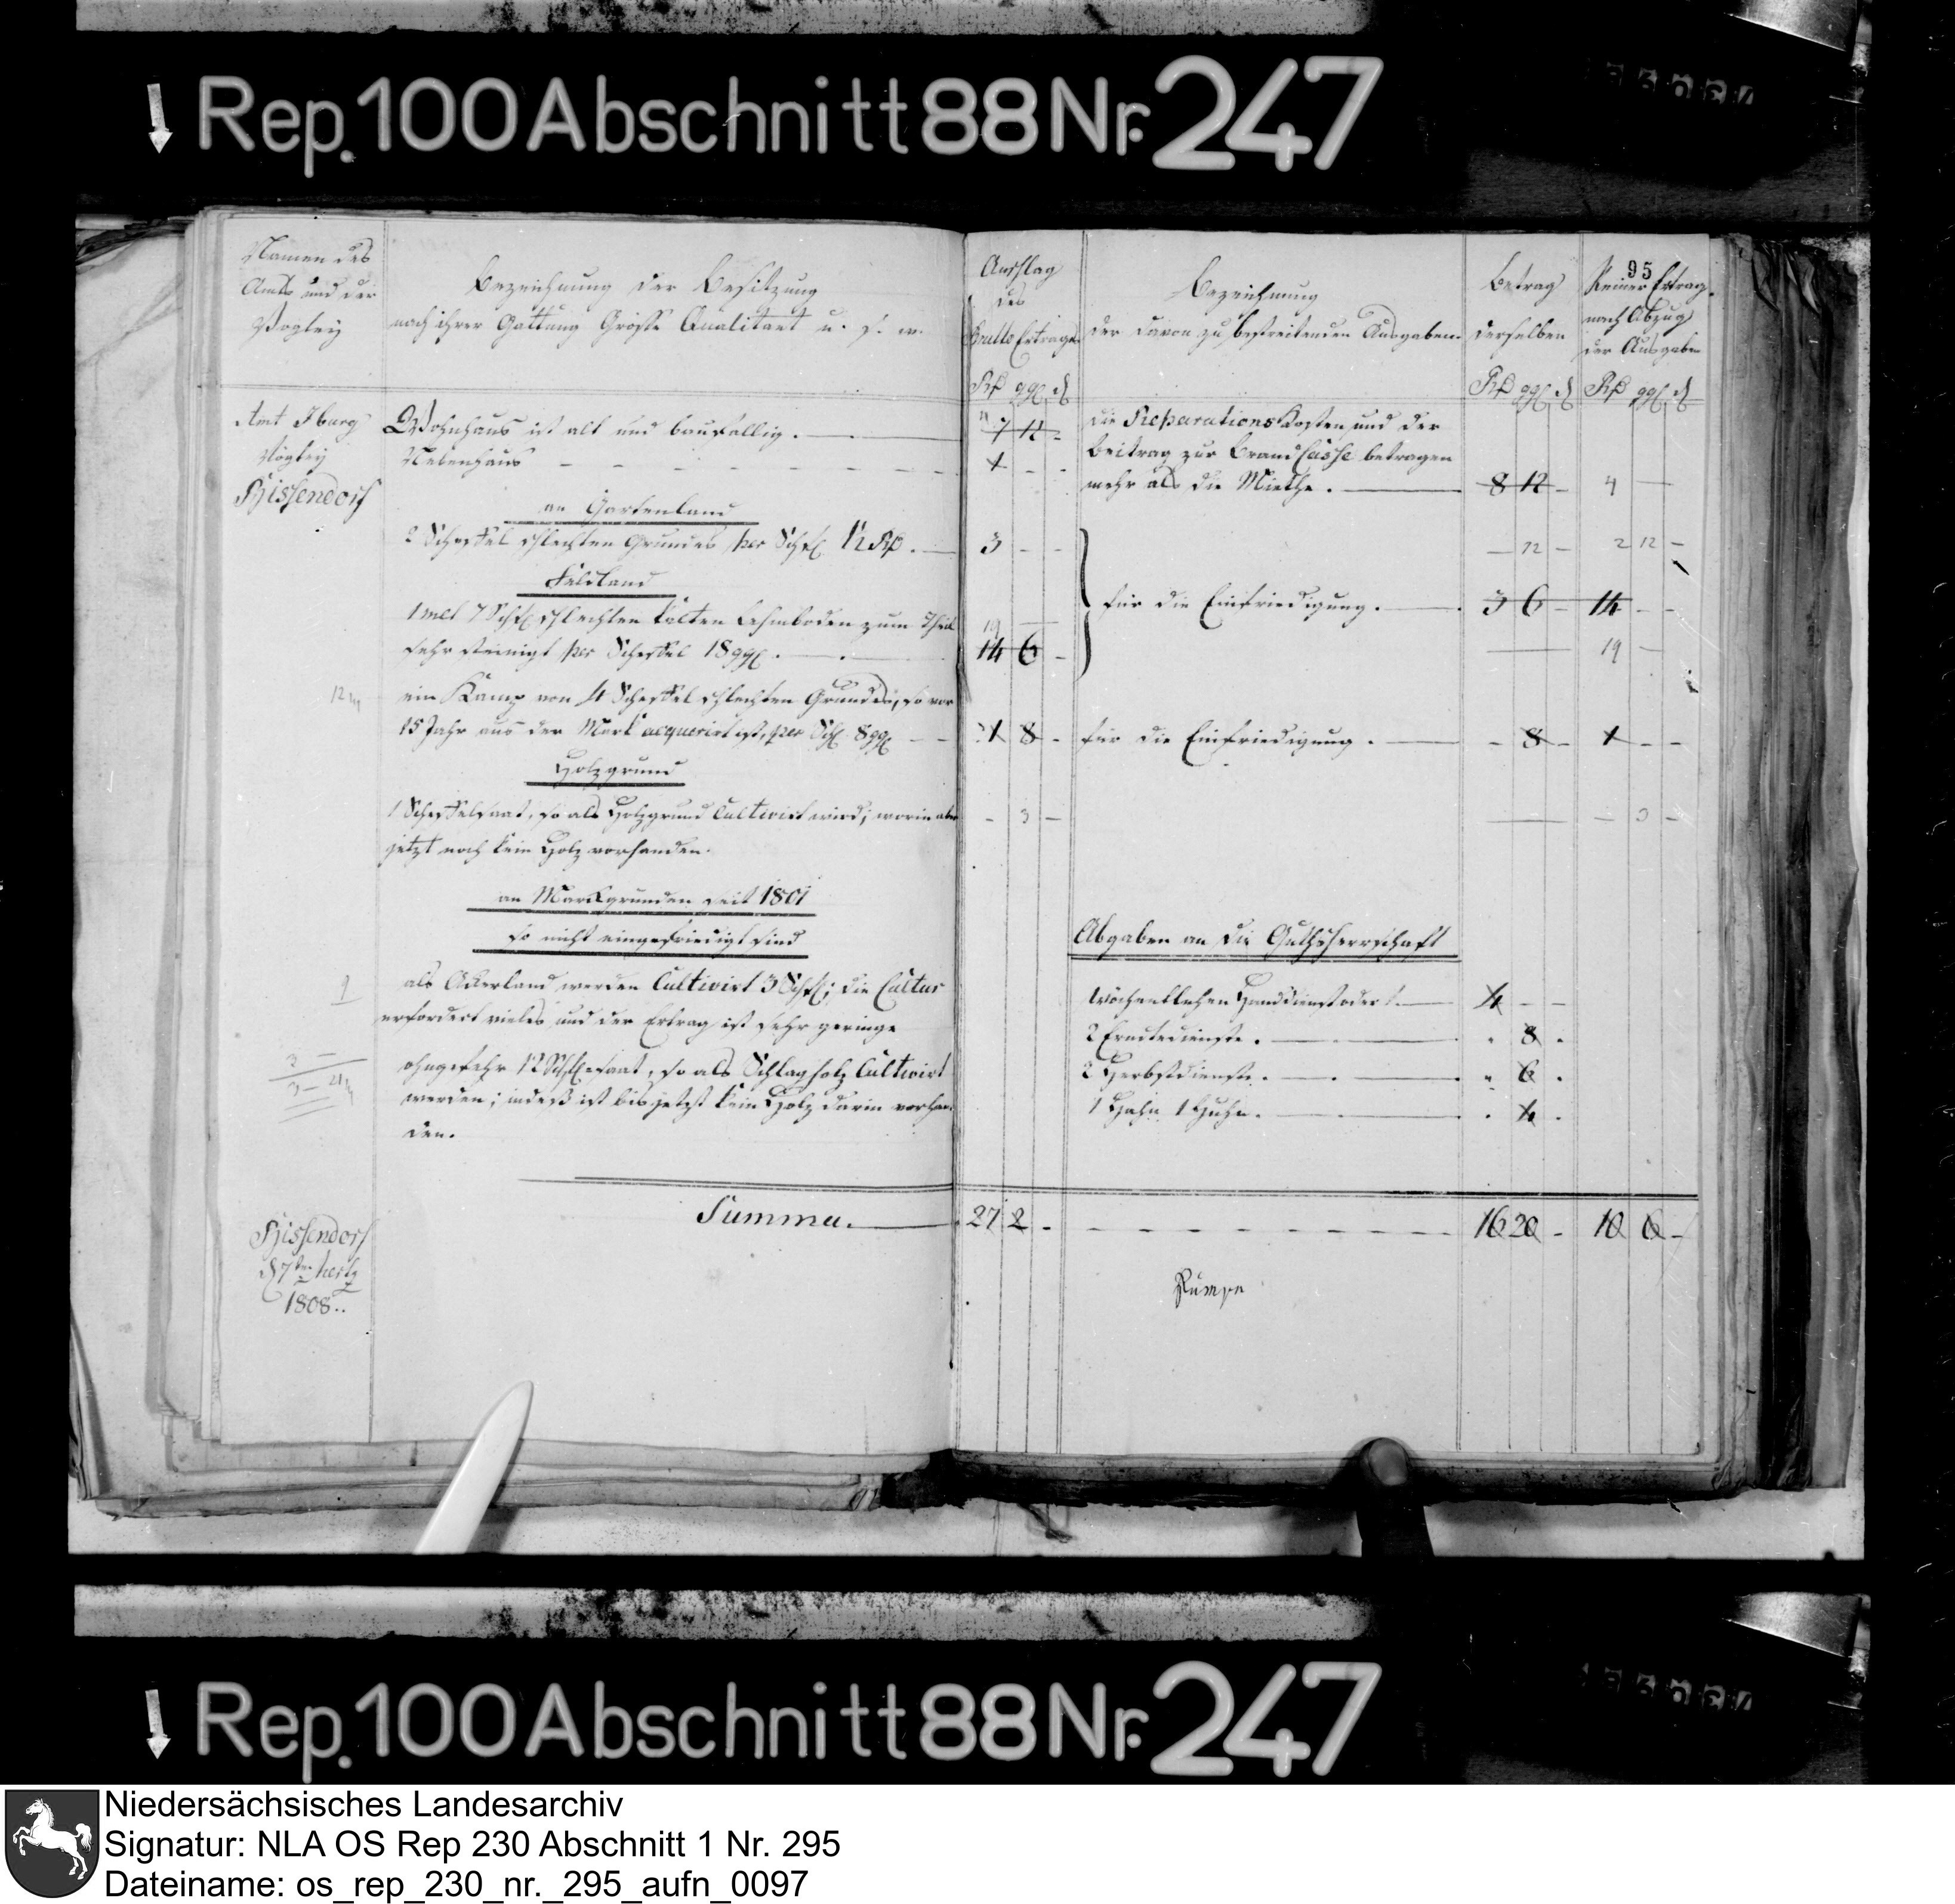 Rep. 100 Abschnitt 88 Nr. 247
95
Namen des
Amts und der
Vogtey
Bezeichnung der Besitzung
nach ihrer Gattung Grösse Qualitaet u. s. w.
Anschlag
des
Brutto Ertrags
Rß ggl ₰
Bezeichnung
der davon zu bestreitenden Ausgaben
Betrag
derselben
Rß ggl ₰
Reiner Ertrag
nach Abzug
der Ausgaben
Rß ggl ₰
Amt Iburg
Vogtey
Bissendorf
Wohnhaus ist alt und baufällig.
7 12 -
Nebenhaus
1 - -
die Reparations Kosten und der
Beitrag zur Brand Casse betragen
mehr als die Miethe.
8 12 -
4
an Gartenland
2 Scheffel schlechten Grundes per Schfl 1½ Rß.
3 - -
- 12 -
2 12 -
Feldland
1 Mlt 7 Schfl schlechten kalten Lehmboden zum Theil
sehr steinigt per Scheffel 18 ggl.
19
14 6 -
für die Einfriedigung.
3 6 -
14 - -
19 -
ein Kamp von 4 Scheffel schlechten Grundes, so vor
15 Jahr aus der Mark acquerirt ist, per Schfl 8 ggl
1 8 -
für die Einfriedigung.
- 8 -
1 - -
Holzgrund
1 Scheffelsaat, so als Holzgrund Cultivirt wird; worin aber
jetzt noch kein Holz vorhanden.
- 3 -
- 3 -
an Markgrunden seit 1801
so nicht eingefriedigt sind
als Ackerland werden Cultivirt 3 Schfl; die Cultur
erfordert vieles und der Ertrag ist sehr geringe
ohngefehr 12 Schflsaat, so als Schlagholz Cultivirt
werden; indeß ist bis jetzt kein Holz darin vorhan
den.
Abgaben an die Guthsherrschaft
Wöchentlichen Handdienst oder
4 - -
2 Erndtedienste.
- 8 -
2 Herbstdienste.
- 6 -
1 Hahn 1 Huhn.
- 4 -
Summa.
27 2 -
16 20 -
10 6 -
Bissendorf
1808..
Rep. 100 Abschnitt 88 Nr. 247
Niedersächsisches Landesarchiv
Signatur: NLA OS Rep 230 Abschnitt 1 Nr. 295
Dateiname: os_rep_230_nr._295_aufn_0097